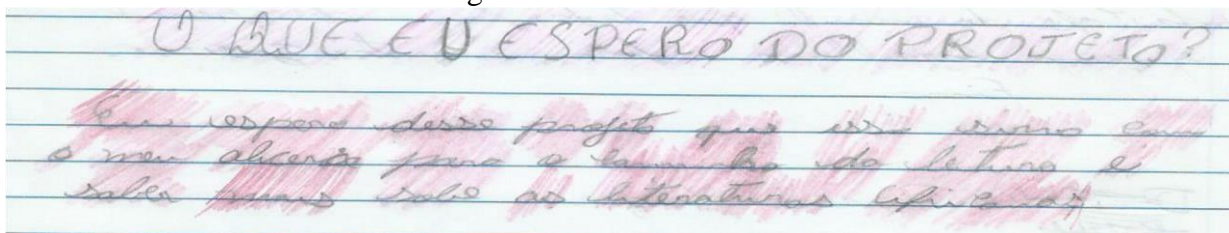 O QUE EU ESPERO DO PROJETO?
Eu espero desse projeto que isso sirva como
o meu alicerce para o caminho da leitura e
saber mais sobe as literaturas africanas.